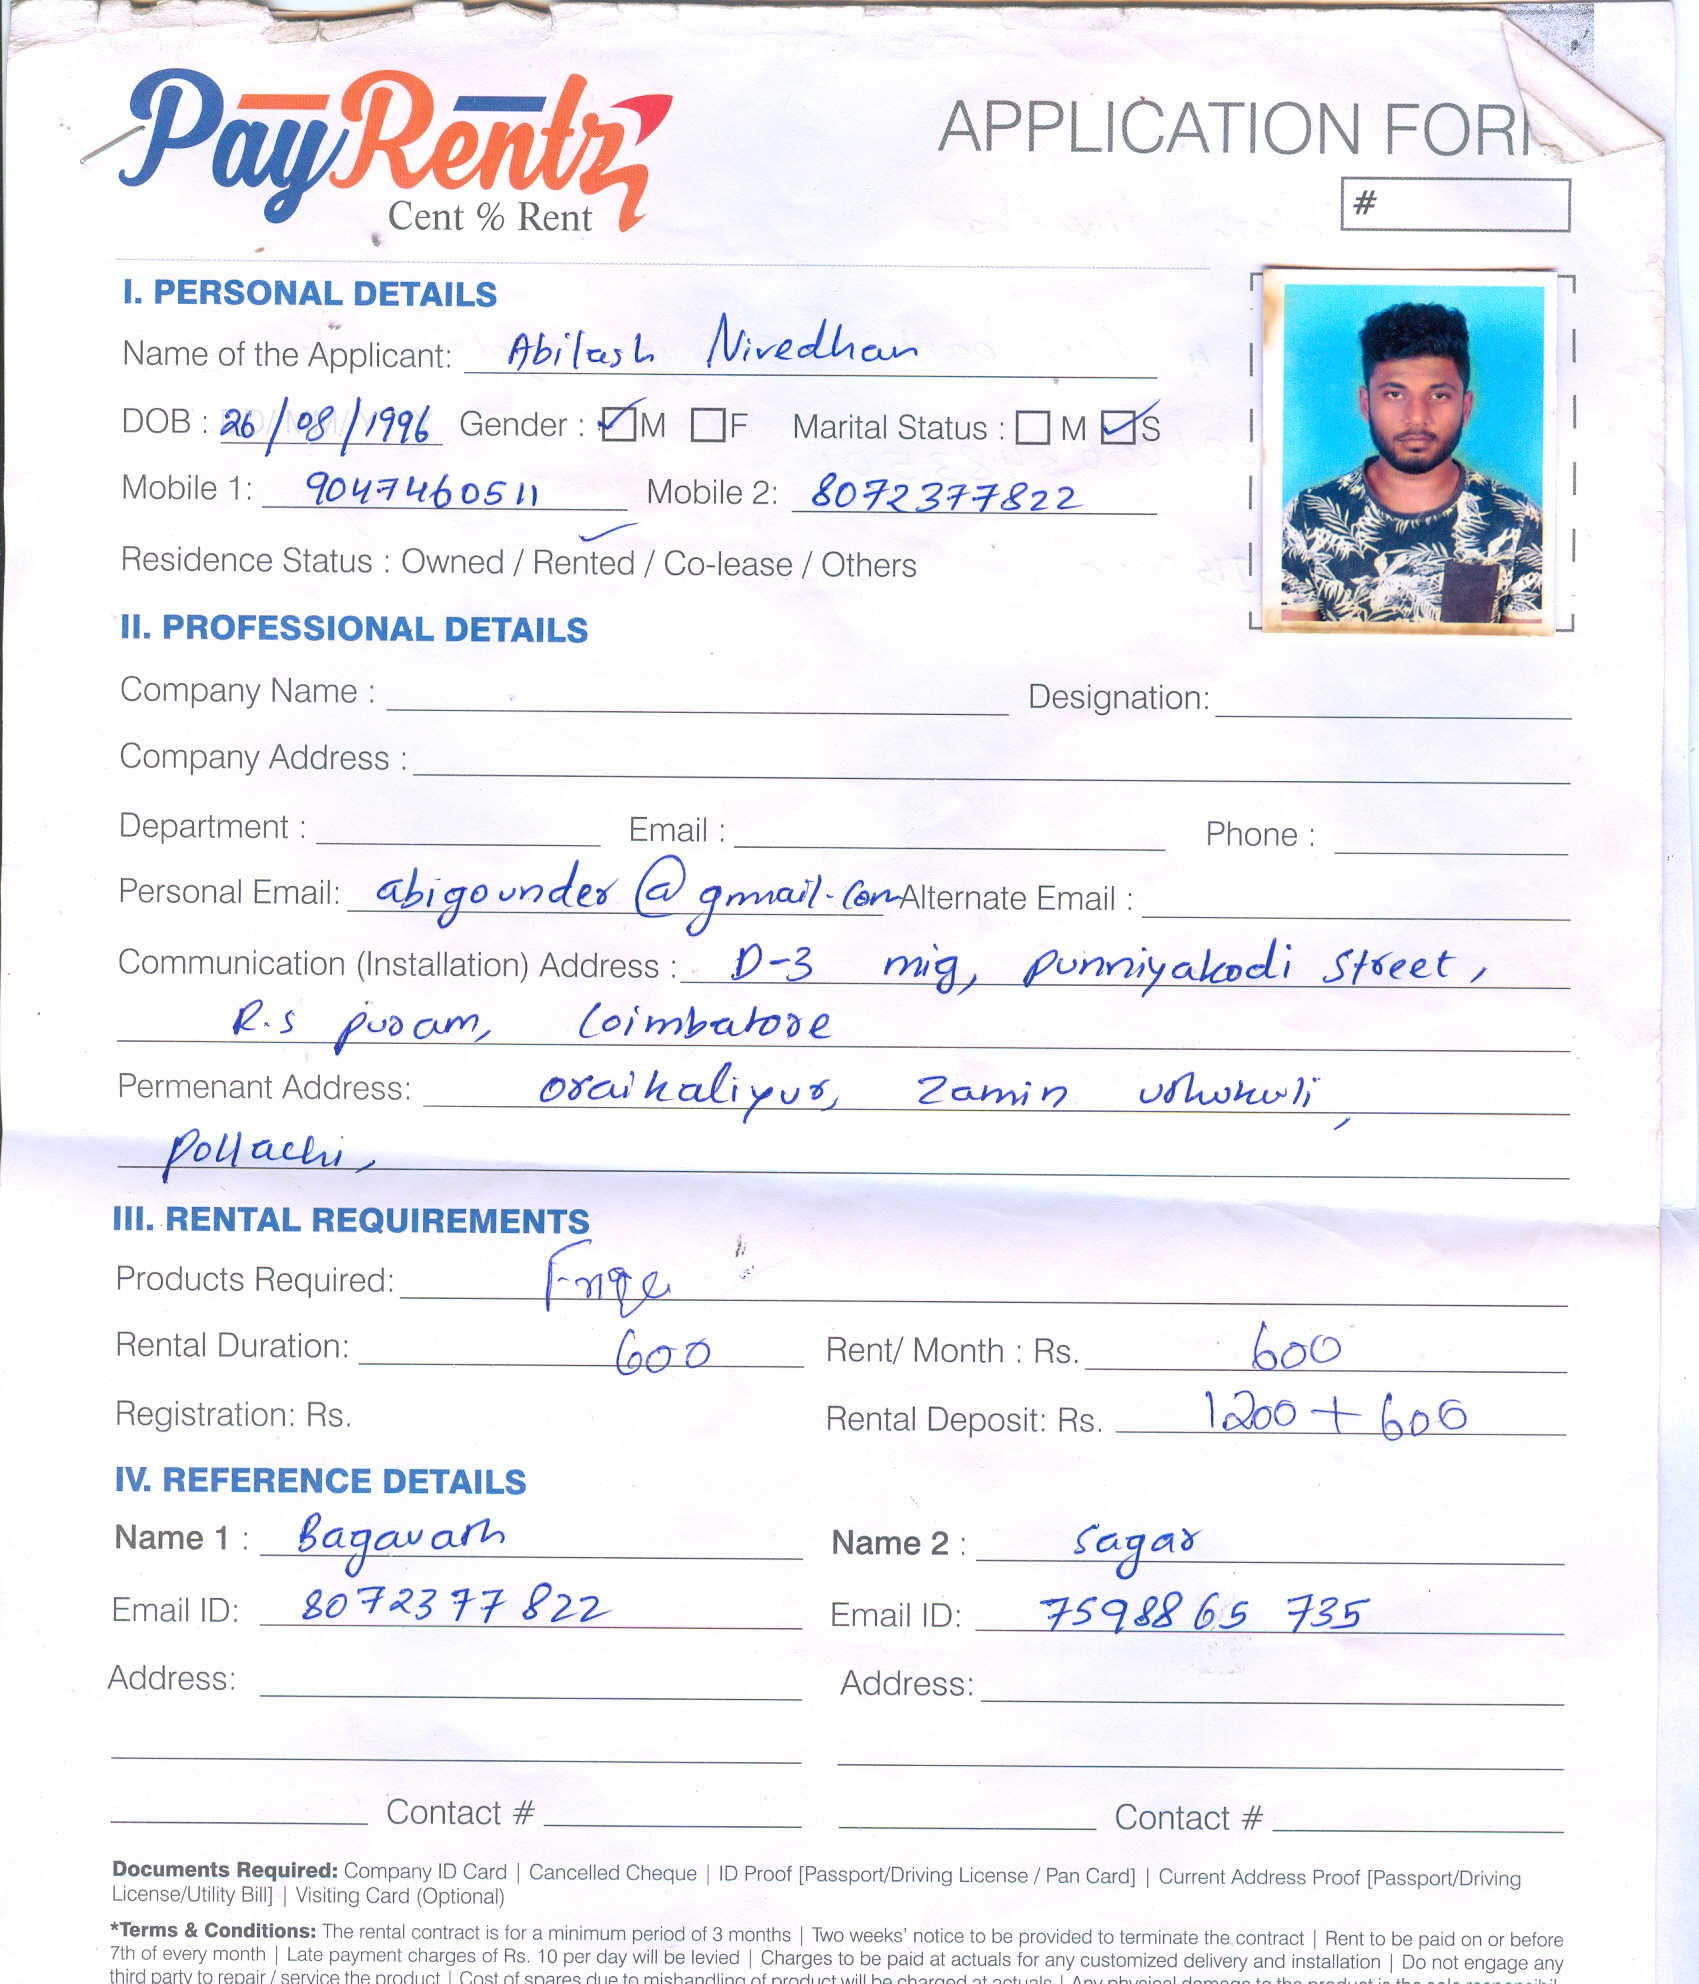 PayRentz
Cent % Rent
APPLICATION FOR
#
I. PERSONAL DETAILS
Name of the Applicant: Abilash Nivedhan
DOB : 26/08/1996 Gender : M F Marital Status : M S
Mobile 1: 9047460511 Mobile 2: 8072377822
Residence Status : Owned / Rented / Co-lease / Others
II. PROFESSIONAL DETAILS
Company Name : Designation:
Company Address :
Department : Email : Phone :
Personal Email: abigounder@gmail.com Alternate Email :
Communication (Installation) Address : D-3 mig, punniyakodi street,
R.s puram, Coimbatore
Permenant Address: oraikaliyur, Zamin
pollachi,
III. RENTAL REQUIREMENTS
Products Required:
Rental Duration: 600 Rent/ Month : Rs. 600
Registration: Rs. Rental Deposit: Rs. 1200 + 600
IV. REFERENCE DETAILS
Name 1 : Bagavath Name 2 : sagar
Email ID: 8072377822 Email ID: 7598865 735
Address: Address:
Contact # Contact #
Documents Required: Company ID Card | Cancelled Cheque | ID Proof [Passport/Driving License / Pan Card] | Current Address Proof [Passport/Driving
License/Utility Bill] | Visiting Card (Optional)
*Terms & Conditions: The rental contract is for a minimum period of 3 months | Two weeks' notice to be provided to terminate the contract | Rent to be paid on or before
7th of every month | Late payment charges of Rs. 10 per day will be levied | Charges to be paid at actuals for any customized delivery and installation | Do not engage any
third party to repair / service the product | Cost of spares due to mishandling of product will be charged at actuals | Any physical damage to the product is the sole